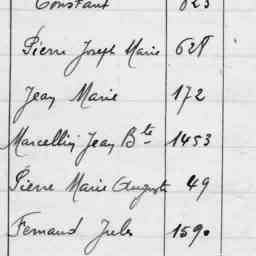 Constant 823
Pierre Joseph Marie 628
Jean Marie 172
Marcellin Jean Bte 1453
Pierre Marie Auguste 49
Fernand Jules 1590